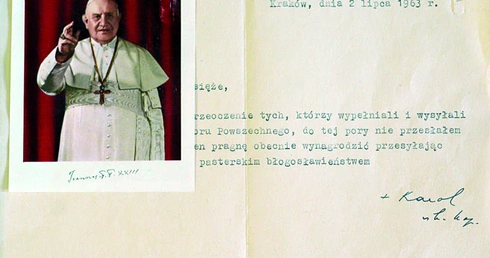 Kraków, dnia 2 lipca 1963 r.
sięże,
rzeoczenie tych, którzy wypełniali i wysyłali
oru Powszechnego, do tej pory nie przesłałem
en pragnę obecnie wynagrodzić przesyłając
pasterskim błogosławieństwem
Joannes P.P. XXIII
+ Karol